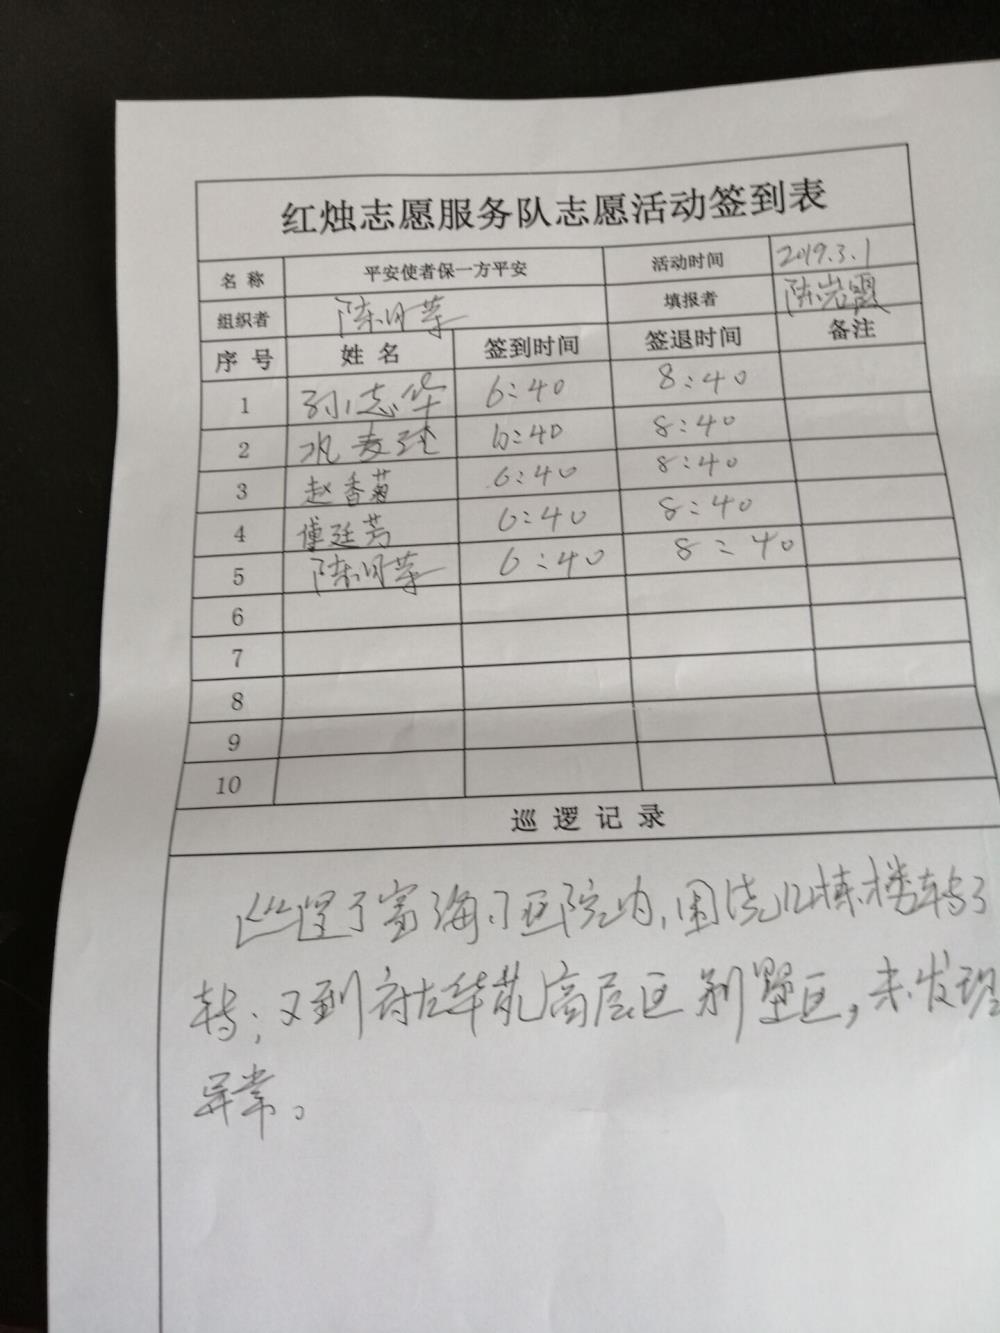 红烛志愿服务队志愿活动签到表
名称 平安使者保一方平安 活动时间 2019.3.1
组织者 陈月苹 填报者 陈岩盟
序号 姓名 签到时间 签退时间 备注
1 孙志华 6:40 8:40
2 6:40 8:40
3 赵香菊 6:40 8:40
4 傅廷芳 6:40 8:40
5 陈月苹 6:40 8:40
6
7
8
9
10
巡逻记录
巡逻了富海小区院内,围绕几栋楼转了
转;又到府左华苑高层区别墅区,未发现
异常。